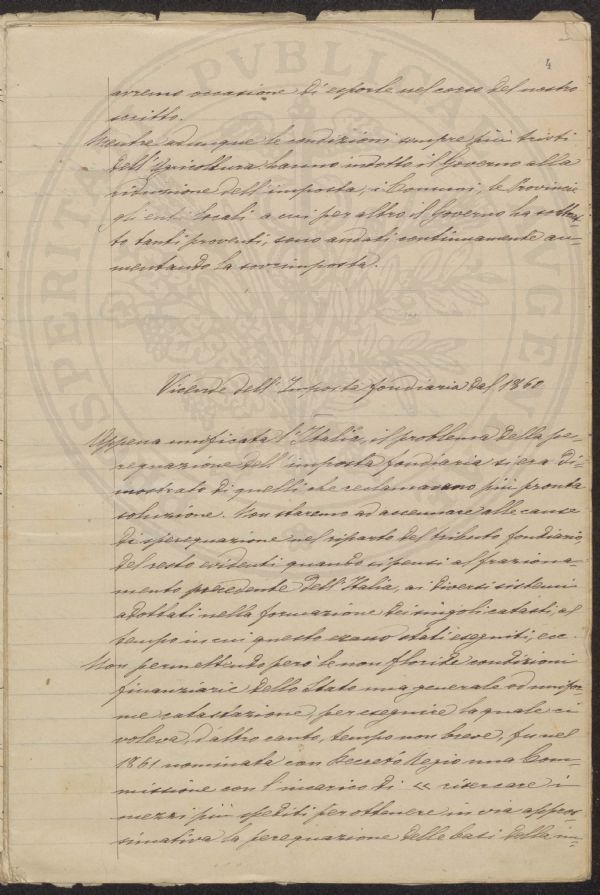 4
avremo occasione di esporle nel corso del nostro
scritto.
Mentre adunque le condizioni sempre più tristi
dell'Agricoltura hanno indotto il Governo alla
riduzione dell'imposta, i Comuni, le Provincie
gli enti locali a cui per altro il Governo ha sottrat-
to tanti proventi, sono andati continuamente au-
mentando la sovrimposta.
Vicende dell'Imposta fondiaria dal 1860
Appena unificata l'Italia, il problema della pe-
requazione dell'imposta fondiaria si era di-
mostrato di quelli che reclamavano più pronta
soluzione. Non staremo ad accennare alle cause
di sperequazione nel riparto del tributo fondiario,
del resto evidenti quando si pensi al fraziona-
mento precedente dell'Italia, ai diversi sistemi
adottati nella formazione dei singoli catasti, al
tempo in cui questo erano stati eseguiti, ecc.
Non permettendo però le non floride condizioni
finanziarie dello Stato una generale ed unifor-
me catastazione, per eseguire la quale ci
voleva, d'altro canto, tempo non breve, fu nel
1861 nominata con Decreto Regio una Com-
missione con l'incarico di « ricercare i
mezzi più spediti per ottenere in via appros-
simativa la perequazione delle basi della im-
PVBLICAE